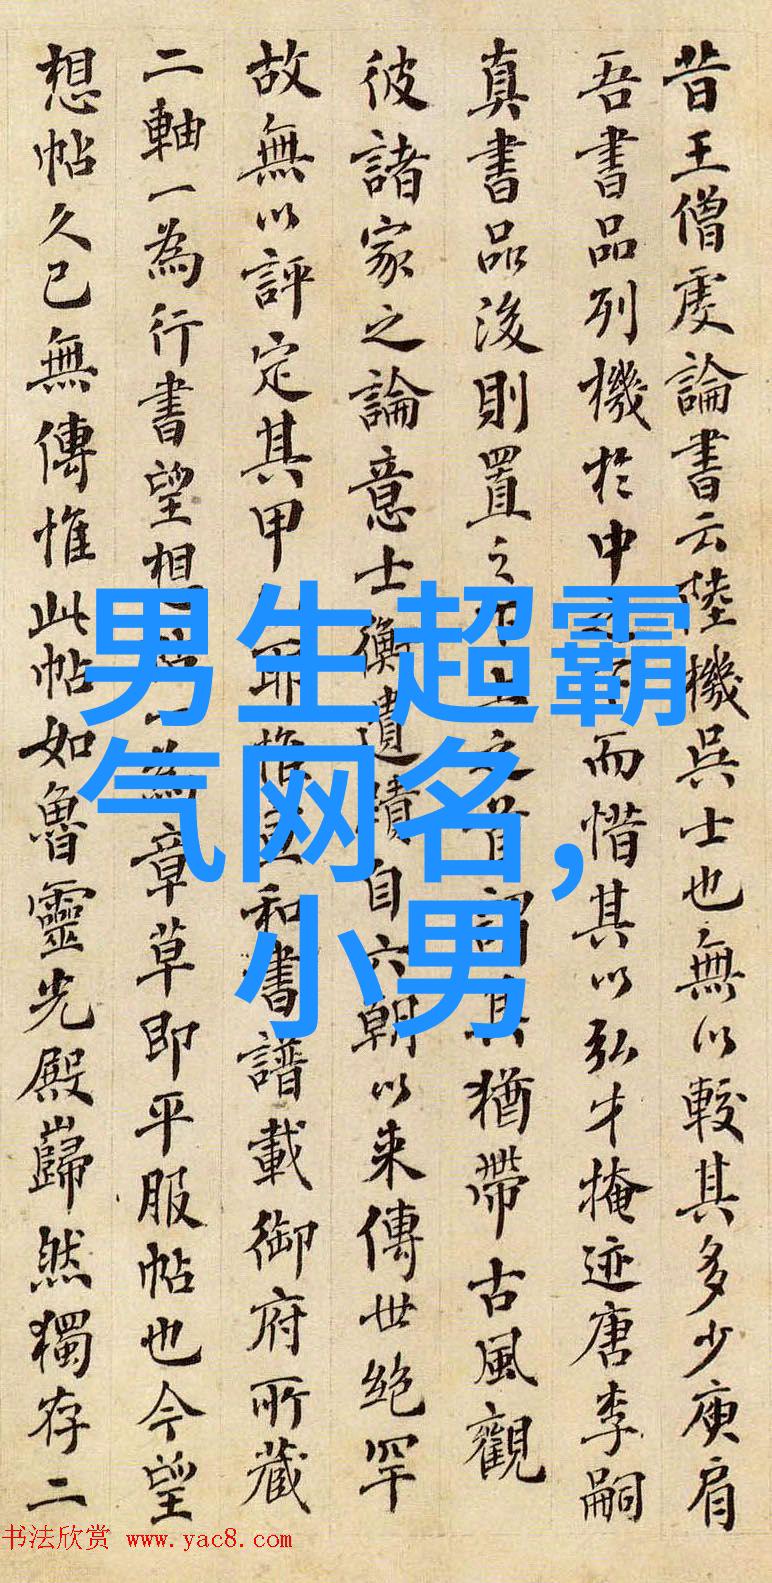 昔王僧虔論書云陸機吳士也無以較其多少庾肩
吾書品列機於中而惜其以弘才掩迹唐李嗣
真書品後則置之之猶帶古風觀
彼諸家之論意士衡遺蹟自六朝以来傳世絶罕
故無以評定其甲耶惟宣和書譜載御府所藏
二軸一為行書望想一為章草即平服帖也今望
想帖久已無傳惟此帖如魯靈光殿巋然獨存二
男生超霸
气网名,
小男
书法欣赏 www.yac8.com